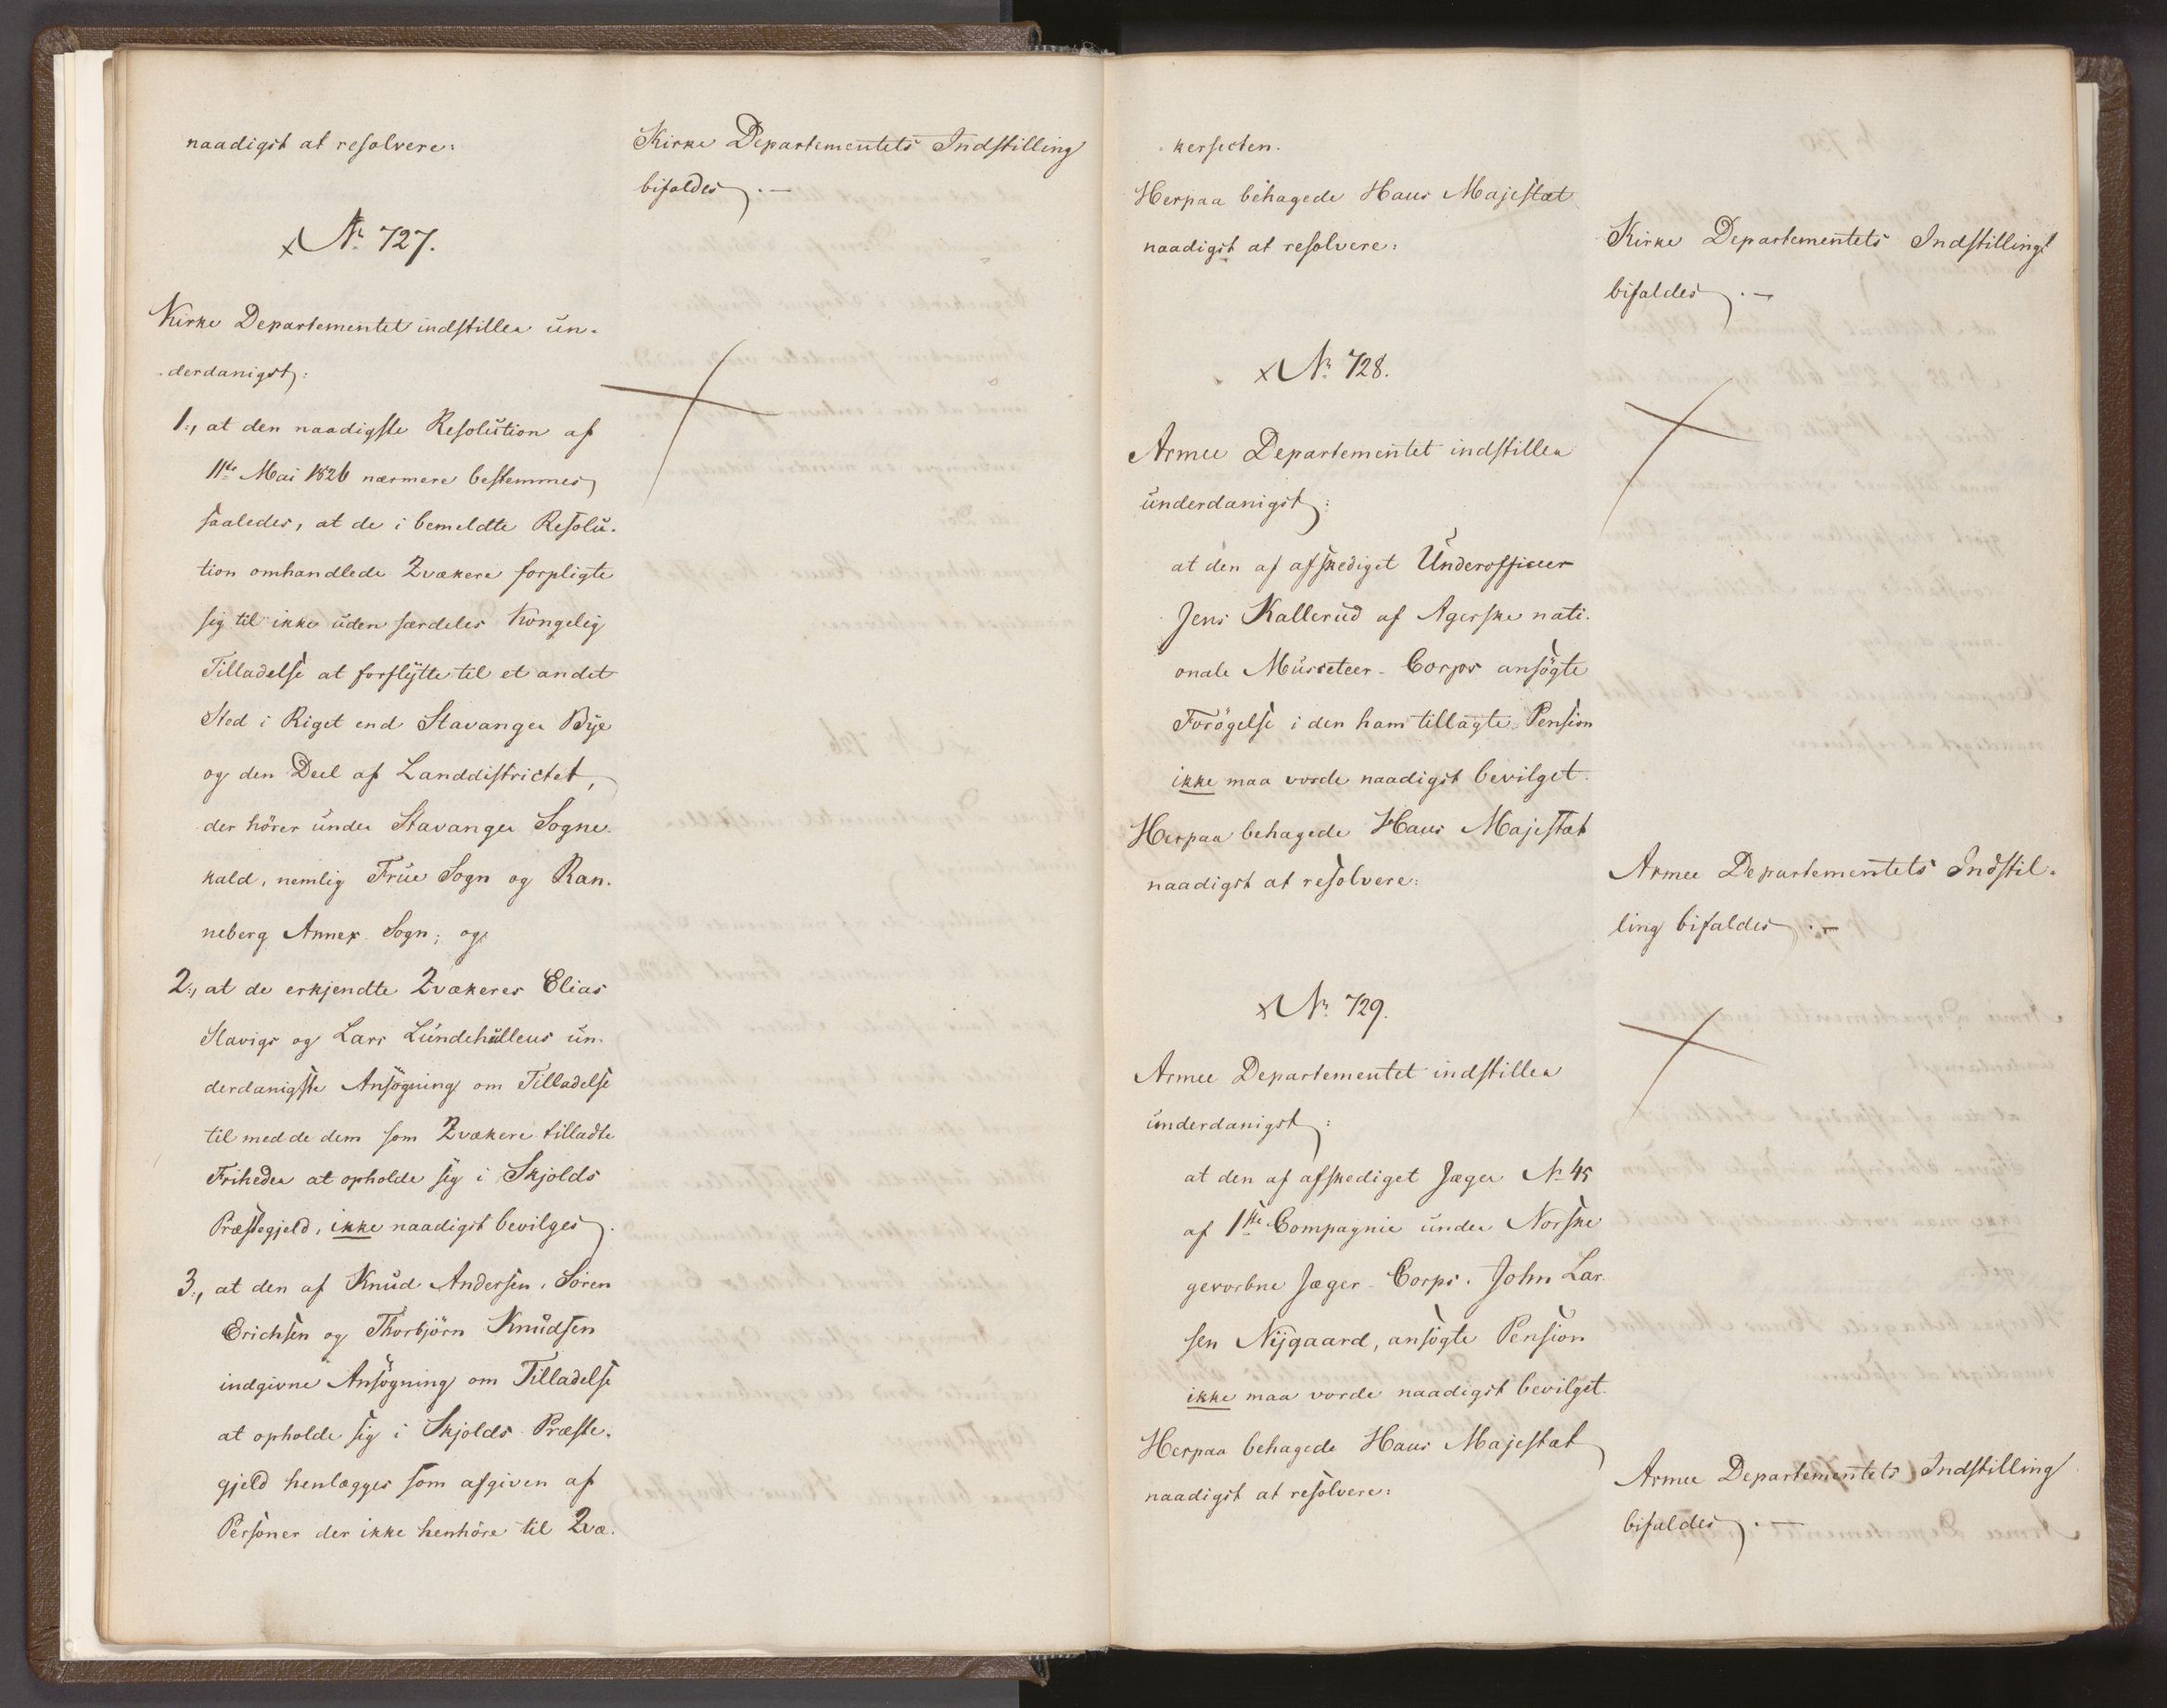 naadigst at resolvere:
Kirke Departementets Indstilling
bifaldes.—
No 727.
Kirke Departementet indstiller un-
derdanigst:
1., at den naadigste Resolution af
11te Mai 1826 nærmere bestemmes
saaledes, at de i bemeldte Resolu-
tion omhandlede Qvækere forpligte
sig til ikke uden særdeles Kongelig
Tilladelse at forflytte til et andet
Sted i Riget end Stavanger Bye
og den Deel af Landdistrictet,
der hörer under Stavanger Sogne-
kald, nemlig Frue Sogn og Ran-
neberg Annex Sogn; og
2., at de erkjendte Qvækeres Elias
Stavigs og Lars Lundehulleus un-
derdanigste Ansögning om Tilladelse
til med de dem som Qvækere tilladte
Friheder at opholde sig i Skjolds
Præstegjeld, ikke naadigst bevilges.
3., at den af Knud Andersen, Sören
Erichsen og Thorbjörn Knudsen
indgivne Ansögning om Tilladelse
at opholde sig i Skjolds Præste-
gjeld henlægges som afgiven af
Personer der ikke henhöre til Qvæ-
kersecten.
Herpaa behagede Hans Majestæt
naadigst at resolvere:
Kirke Departementets Indstilling
bifaldes.—
No 728.
Armee Departementet indstiller
underdanigst:
at den af afskediget Underofficeer
Jens Kallerud af Agerske nati-
onale Musqueteer-Corps ansögte
Forögelse i den ham tillagte Pension
ikke maa vorde naadigst bevilget.
Herpaa behagede Hans Majestæt
naadigst at resolvere:
Armee Departementets Indstil-
ling bifaldes.—
No 729.
Armee Departementet indstiller
underdanigst:
at den af afskediget Jæger No 45
af 1ste Compagnie under Norske
gevorbne Jæger-Corps, John Lar-
sen Nygaard, ansögte Pension
ikke maa vorde naadigst bevilget.
Herpaa behagede Hans Majestæt
naadigst at resolvere:
Armee Departementets Indstilling
bifaldes.—